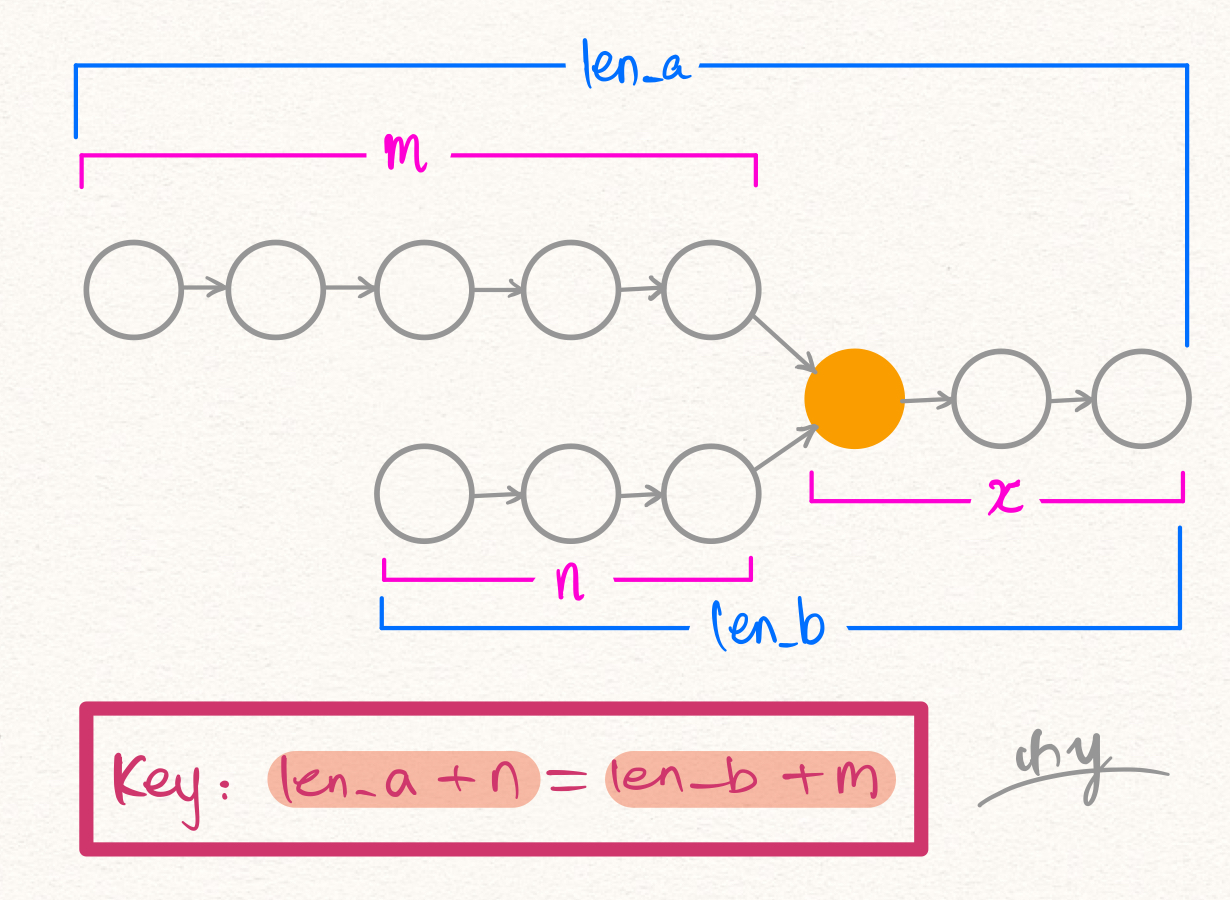 len_a
m
x
n
len_b
Key: len_a + n = len_b + m